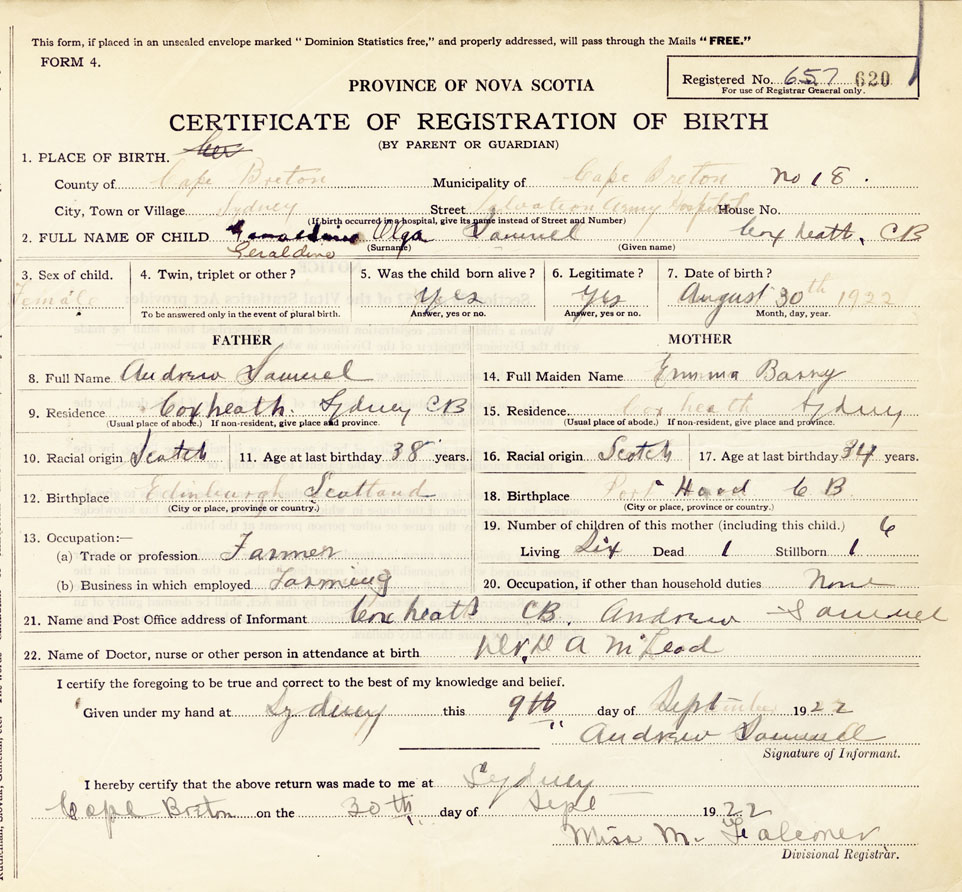 This form, if placed in an unsealed envelope marked "Dominion Statistics free," and properly addressed, will pass through the Mails "FREE."
FORM 4.
Registered No. 657 620
For use of Registrar General only.
PROVINCE OF NOVA SCOTIA
CERTIFICATE OF REGISTRATION OF BIRTH
(BY PARENT OR GUARDIAN)
1. PLACE OF BIRTH.
County of Cape Breton Municipality of Cape Breton No 18.
City, Town or Village Sydney Street Salvation Army Hospital House No.
(If birth occurred in a hospital, give its name instead of Street and Number)
2. FULL NAME OF CHILD Geraldine Olga Samuel Coxheath, CB
Geraldine (Surname) (Given name)
3. Sex of child. 4. Twin, triplet or other? 5. Was the child born alive? 6. Legitimate? 7. Date of birth?
Female Yes Yes August 30th 1922
To be answered only in the event of plural birth. Answer, yes or no. Answer, yes or no. Month, day, year.
FATHER MOTHER
8. Full Name Andrew Samuel 14. Full Maiden Name Emma Barry
9. Residence Coxheath. Sydney CB 15. Residence. Coxheath Sydney
(Usual place of abode.) If non-resident, give place and province. (Usual place of abode.) If non-resident, give place and province.
10. Racial origin Scotch 11. Age at last birthday 38 years. 16. Racial origin Scotch 17. Age at last birthday 34 years.
12. Birthplace Edinburgh Scotland 18. Birthplace Port Hood C B
(City or place, province or country.) (City or place, province or country.)
13. Occupation:— 19. Number of children of this mother (including this child.) 6
(a) Trade or profession Farmer Living Six Dead 1 Stillborn 1
(b) Business in which employed Farming 20. Occupation, if other than household duties None
21. Name and Post Office address of Informant Coxheath CB. Andrew Samuel
22. Name of Doctor, nurse or other person in attendance at birth A McLeod
I certify the foregoing to be true and correct to the best of my knowledge and belief.
Given under my hand at Sydney this 9th day of September 1922
Andrew Samuel
Signature of Informant.
I hereby certify that the above return was made to me at Sydney
Cape Breton on the 30th day of Sept 1922
Miss M. Falconer
Divisional Registrar.